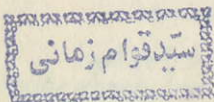 سیّد قوام زمانی